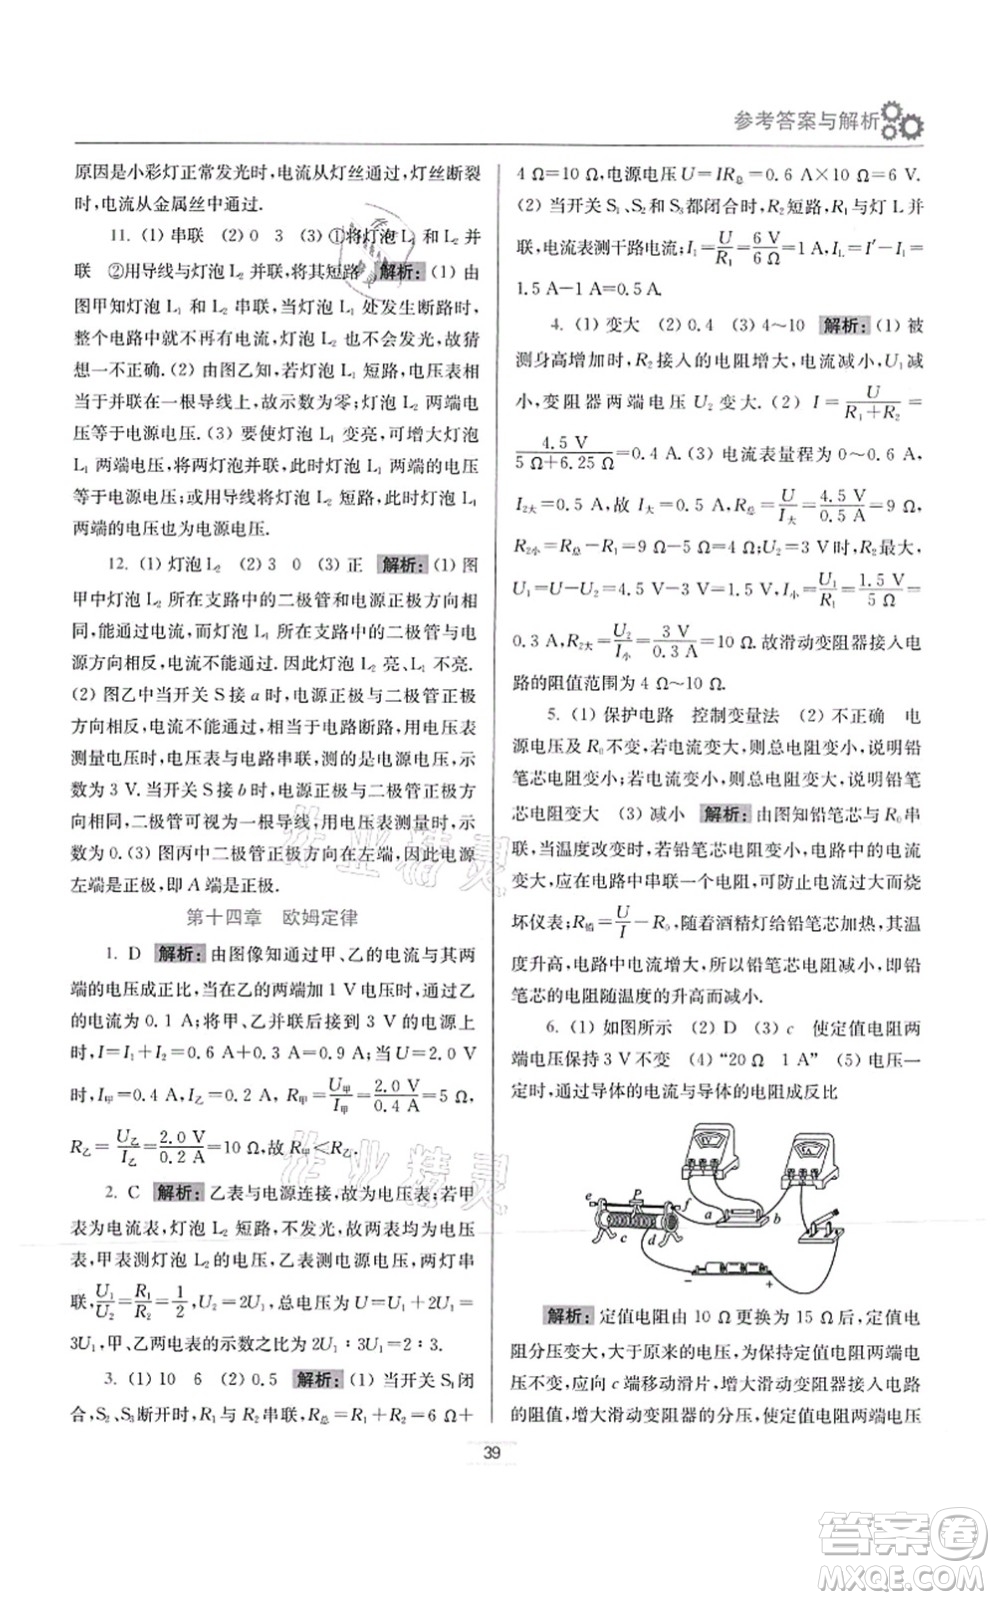 参考答案与解析
原因是小彩灯正常发光时,电流从灯丝上通过,灯丝断裂
时,电流从金属丝中通过.
11. (1) 串联 (2) 0 3 (3) ①将灯泡 L₁ 和 L₂ 并
联 ②用导线与灯泡 L₂ 并联,将其短路 解析: (1) 由
图甲知灯泡 L₁ 和 L₂ 串联,当灯泡 L₁ 处发生断路时,
整个电路中就没有电流,灯泡 L₂ 也不会发光,故猜
想一不正确.(2) 由图乙知,若灯泡 L₁ 短路,电压表相
当于并联在一根导线上,故示数为零;灯泡 L₂ 两端电
压等于电源电压.(3) 要使灯泡 L₁ 变亮,可增大灯泡
L₁ 两端电压,将两灯泡并联,此时灯泡 L₁ 两端的电压
等于电源电压,或用导线将灯泡 L₂ 短路,此时灯泡 L₁
两端的电压也为电源电压.
12. (1) 灯泡 L₂ (2) 3 0 (3) 正 解析: (1) 图
甲中灯泡 L₂ 所在支路中的二极管和电源正极方向相
同,能通过电流,而灯泡 L₁ 所在支路中的二极管与电
源方向相反,电流不能通过.灯泡 L₂ 亮、L₁ 不亮.
(2) 图乙中当开关 S 接 a 时,电源正极与二极管正极
方向相反,电流不能通过,相当于电路断路,用电压表
测量电压,相当于电压表与电路串联,测电源电压,示
数为 3 V.当开关 S 接 b 时,二极管方向与电源正极相
同,二极管可视为一根导线,用电压表测量时,电压表示
数为 0.(3) 图丙中二极管正极方向在左端,因此电源
左端是正极,即 A 端是正极.
第十四章 欧姆定律
1. D 解析: 由图像知通过甲、乙的电流与其两
端的电压成正比,当在乙的两端加 1 V 电压时,通过乙
的电流为 0.1 A;将甲、乙并联后接到 3 V 的电源上
时,I=I₁+I₂=0.6 A+0.3 A=0.9 A;当 U=2.0 V
时,I甲=0.4 A,I乙=0.2 A,R甲=U甲/I甲=2.0 V/0.4 A=5 Ω,
R乙=U乙/I乙=2.0 V/0.2 A=10 Ω,故 R甲<R乙.
2. C 解析: 乙表与电源连接,故为电压表;若甲
表为电流表,灯泡 L₂ 短路,不发光,故两表均为电压
表,甲表测灯泡 L₂ 的电压,乙表测电源电压,两灯串
联,U₁/U₂=R₁/R₂=1/2,U₂=2U₁,总电压为 U=U₁+2U₁=
3U₁,甲、乙两电表的示数之比为 2U₁∶3U₁=2∶3.
3. (1) 10 6 (2) 0.5 解析: (1) 当开关 S₁ 闭
合,S₂、S₃ 断开时,R₁ 与 R₂ 串联,R总=R₁+R₂=6 Ω+
4 Ω=10 Ω,电源电压 U=IR总=0.6 A×10 Ω=6 V.
(2) 当开关 S₁、S₂ 和 S₃ 都闭合时,R₂ 短路,R₁ 与灯 L 并
联,电流表测干路电流;I₁=U/R₁=6 V/6 Ω=1 A,IL=I′−I₁=
1.5 A−1 A=0.5 A.
4. (1) 变大 (2) 0.4 (3) 4～10 解析: (1) 被
测身高增加时,R₂ 接入的电阻增大,电流减小,U₁ 减
小,变阻器两端电压 U₂ 变大.(2) I=U/(R₁+R₂)=
4.5 V/(5 Ω+6.25 Ω)=0.4 A.(3) 电流表量程为 0～0.6 A,
I₂大=0.5 A,故 I大=0.5 A,R总=U/I大=4.5 V/0.5 A=9 Ω,
R₂小=R总−R₁=9 Ω−5 Ω=4 Ω;U₂=3 V 时,R₂ 最大,
U₁=U−U₂=4.5 V−3 V=1.5 V,I小=U₁/R₁=1.5 V/5 Ω=
0.3 A,R₂大=U₂/I小=3 V/0.3 A=10 Ω.故滑动变阻器接入电
路的阻值范围为 4 Ω～10 Ω.
5. (1) 保护电路 控制变量法 (2) 不正确 电
源电压及 R₀ 不变,若电流变大,则总电阻变小,说明铅
笔芯电阻变小;若电流变小,则总电阻变大,说明铅笔
芯电阻变大 (3) 减小 解析: 由图知铅笔芯与 R₀ 串
联,当温度改变时,若铅笔芯电阻太小,电路中的电流
会变得非常大,因此电路中串联一个电阻,可防止烧
坏仪表;R铅=U/I−R₀,随着酒精灯给铅笔芯加热,其温
度升高,电路中电流增大,所以铅笔芯的电阻减小,铅
笔芯的电阻随温度的升高而减小.
6. (1) 如图所示 (2) D (3) c 使定值电阻两
端电压保持 3 V 不变 (4) “20 Ω 1 A” (5) 电压一
定时,通过导体的电流与导体的电阻成反比
V
A
e
P
f
a
b
c
d
− +
解析: 定值电阻由 10 Ω 更换为 15 Ω 后,定值电
阻分压变大,大于原来的电压,为使定值电阻两端电
压不变,应向 c 端移动滑片,增大滑动变阻器接入电路
的阻值,增大滑动变阻器的分压,使定值电阻两端电压
39
作业精灵
作业精灵
答案卷
MXQE.COM